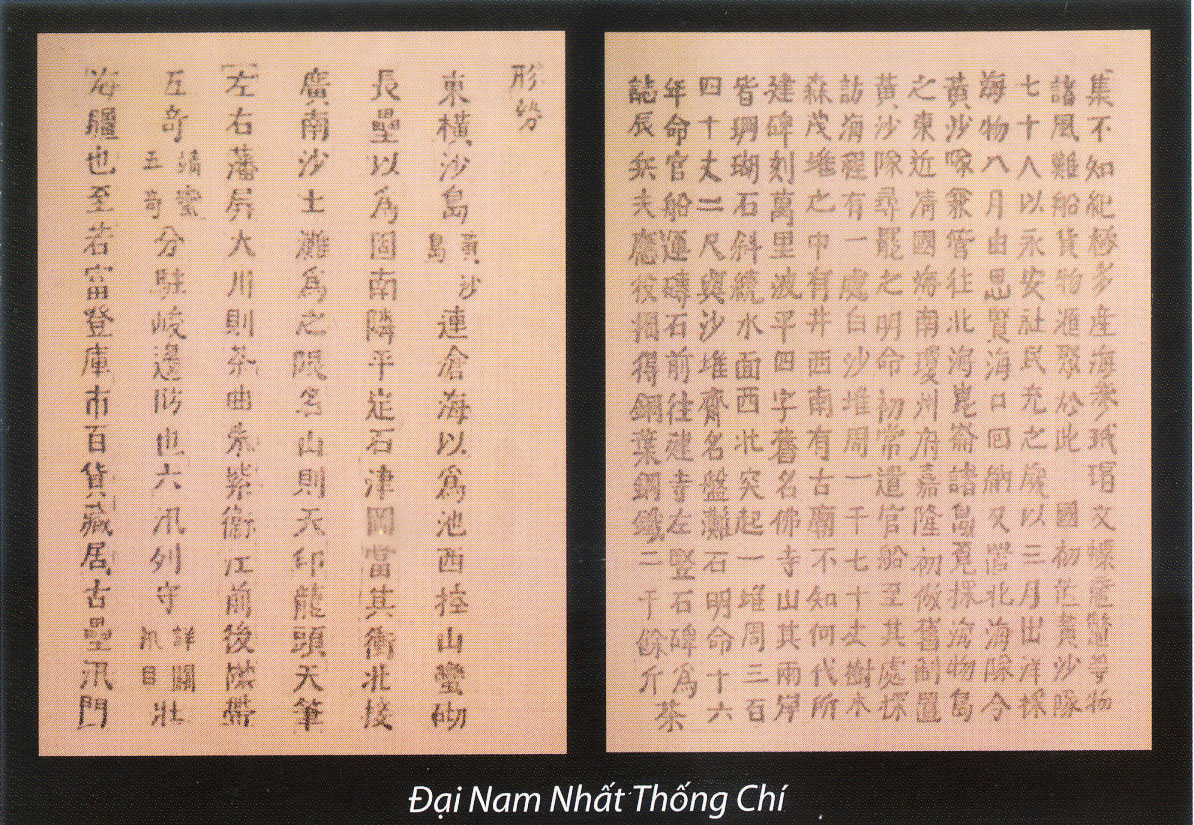 集不知紀極多産海參玳瑁文螺黿鼈等物
諸風難船貨物滙聚於此 國初置黃沙隊
七十人以永安社民充之歲以三月出洋採
海物八月由思賢海口回納又置北海隊令
黃沙隊兼管往北海崑崙諸島覓採海物島
之東近清國海南瓊州府嘉隆初倣舊制置
黃沙隊尋罷之明命初常遣官船至其處探
訪海程有一處白沙堆周一千七十丈樹木
森茂堆之中有井西南有古廟不知何代所
建碑刻萬里波平四字舊名佛寺山其兩岸
皆珊瑚石斜繞水面西北突起一堆周三百
四十丈二尺與沙堆齊名盤灘石明命十六
年命官船運磚石前往建寺左竪石碑爲茶
誌辰兵夫應役掘得銅葉鋼鐵二千餘斤
形勢
東橫沙島黃沙島連滄海以爲池西控山蠻砌
長壘以爲固南隣平定石津岡當其衝北接
廣南沙土灘爲之限名山則天印龍頭天筆
左右藩屏大川則茶曲茶紫衛江前後襟帶
五奇靖蠻五奇分駐峻邊防也六汛列守詳關汛目壯
海疆也至若富登庫市百貨藏居古壘汛門
Đại Nam Nhất Thống Chí